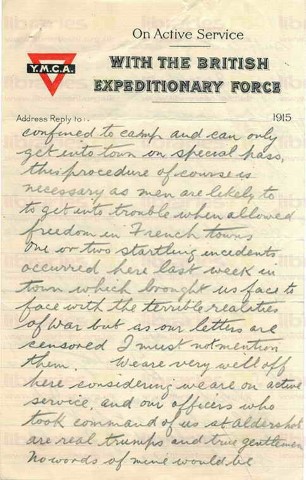 On Active Service
Y.M.C.A.
WITH THE BRITISH
EXPEDITIONARY FORCE
Address Reply to..
1915
confined to camp and can only
get into town on special pass,
this procedure of course is
necessary as men are likely to
to get into trouble when allowed
freedom in French towns
One or two startling incedents
occurred here last week in
town which brought us face to
face with the terrible realities
of War but as our letters are
censored I must not mention
them. We are very well off
here considering we are on active
service, and our officers who
took command of us at Aldershot
are real trumps and true gentlemen
No words of mine would be